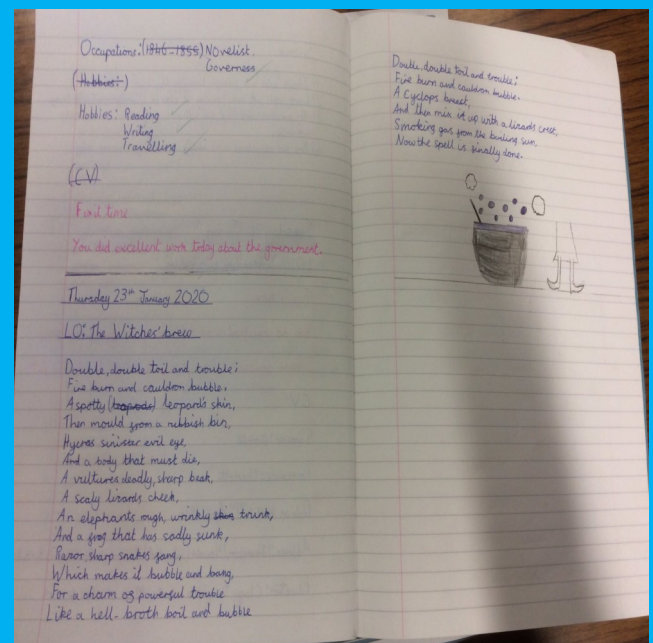 Occupations: (1846-1855) Novelist.
Governess
(Hobbies:)
Hobbies: Reading
Writing
Travelling
(CV)
First time
You did excellent work today about the government.
Thursday 23rd January 2020
LO: The Witches' brew
Double, double toil and trouble;
Fire burn and cauldron bubble.
A spotty leopard's skin,
Then mould from a rubbish bin,
Hyenas sinister evil eye,
And a body that must die,
A vultures deadly, sharp beak,
A scaly lizards cheek,
An elephants rough, wrinkly skin trunk,
And a frog that has sadly sunk,
Razor, sharp snakes fang,
Which makes it bubble and bang,
For a charm of powerful trouble
Like a hell-broth boil and bubble
Double, double toil and trouble;
Fire burn and cauldron bubble.
A Cyclops breast,
And then mix it up with a lizards crest,
Smoking gas from the burning sun,
Now the spell is finally done.